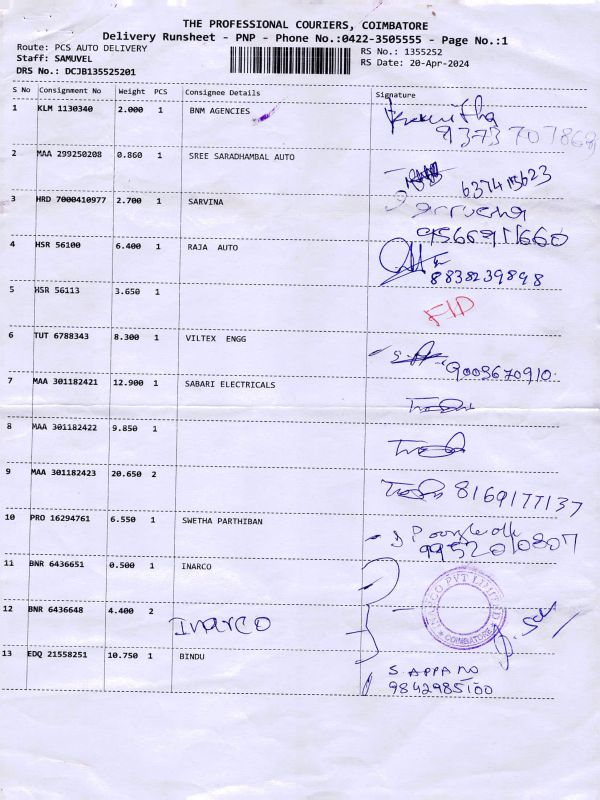 THE PROFESSIONAL COURIERS, COIMBATORE
Delivery Runsheet - PNP - Phone No.:0422-3505555 - Page No.:1
Route: PCS AUTO DELIVERY
Staff: SAMUVEL
DRS No.: DCJB135525201
RS No.: 1355252
RS Date: 20-Apr-2024
S No Consignment No Weight PCS Consignee Details Signature
1 KLM 1130340 2.000 1 BNM AGENCIES
9373707868
2 MAA 299250208 0.860 1 SREE SARADHAMBAL AUTO
3 HRD 7000410977 2.700 1 SARVINA
4 HSR 56100 6.400 1 RAJA AUTO
8838239898
5 HSR 56113 3.650 1
6 TUT 6788343 8.300 1 VILTEX ENGG
9003670910
7 MAA 301182421 12.900 1 SABARI ELECTRICALS
8 MAA 301182422 9.850 1
9 MAA 301182423 20.650 2
8169177137
10 PRO 16294761 6.550 1 SWETHA PARTHIBAN
9952010807
11 BNR 6436651 0.500 1 INARCO
INARCO PVT LIMITED
COIMBATORE
12 BNR 6436648 4.400 2
Inarco
13 EDQ 21558251 10.750 1 BINDU
S. APPA NO
9842985100